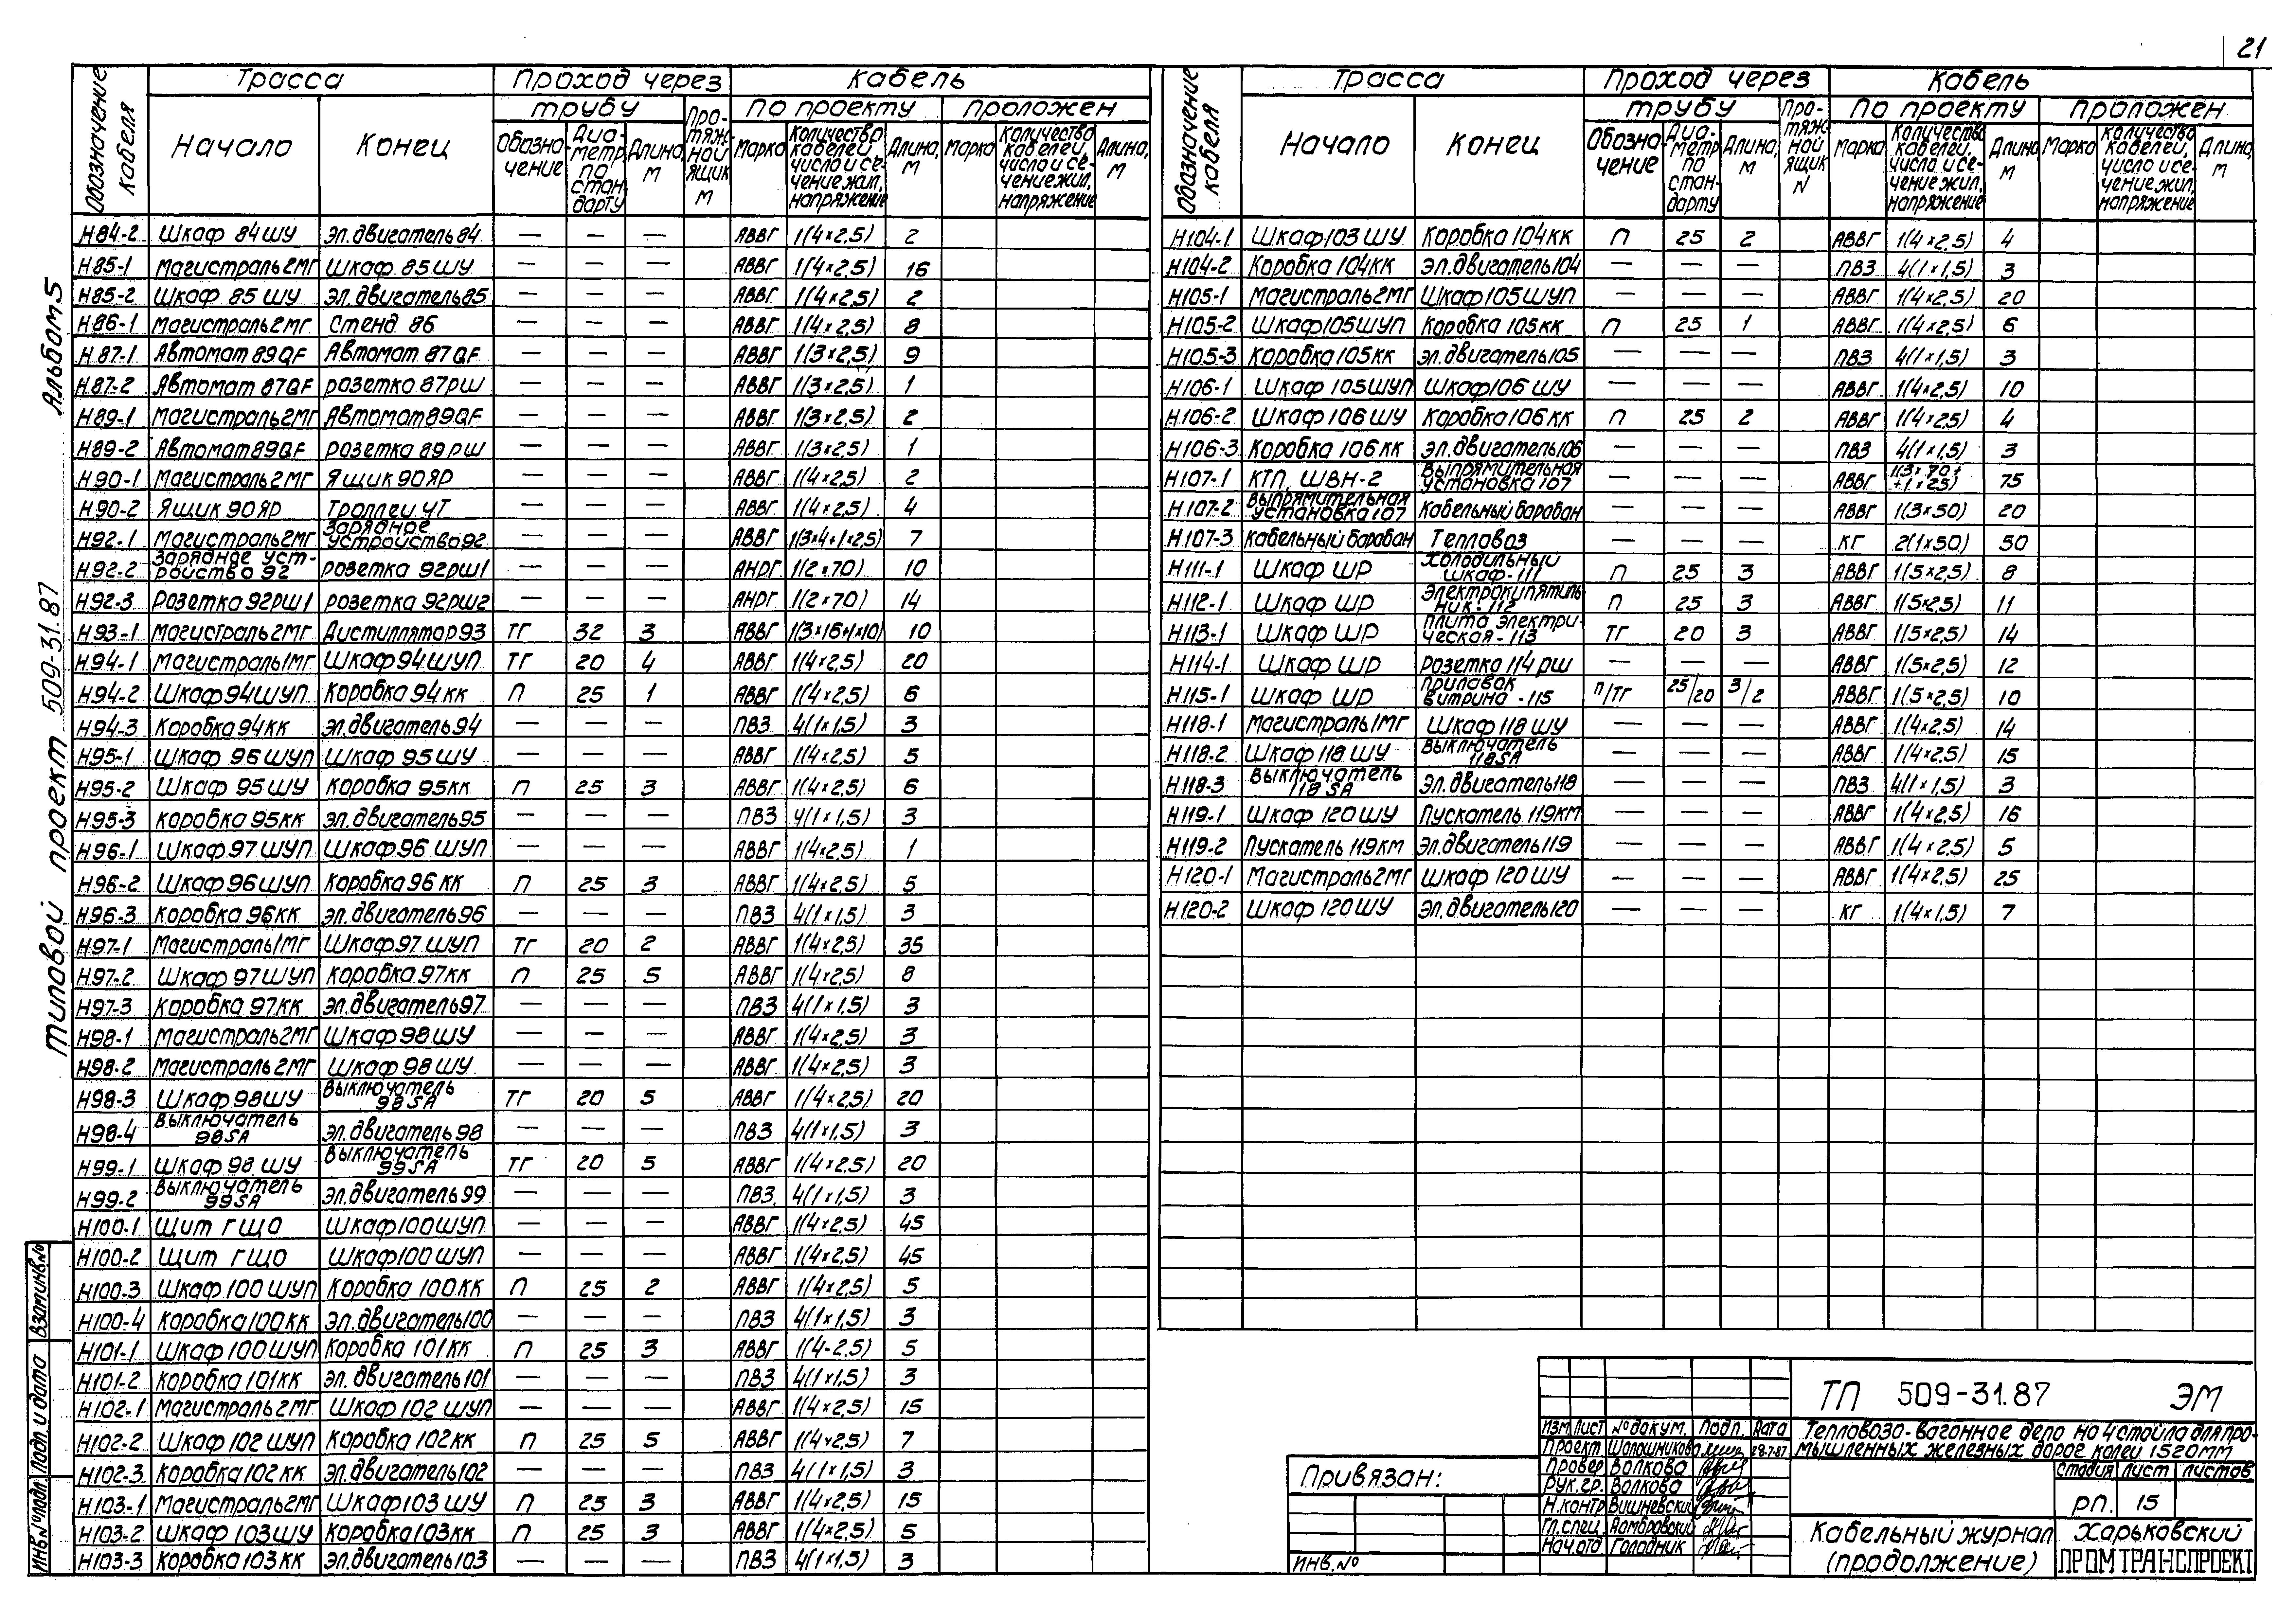 21
Альбом 5
типовой проект 509-31.87
Взам.инв.№
Подп. и дата
Инв.№ подл.
Обозначение кабеля | Трасса | Проход через | Кабель
Начало | Конец | трубу | Протяжной ящик, М | по проекту | проложен
Обозначение | Диаметр по стандарту | Длина, М | Марка | Количество кабелей, число и сечение жил, напряжение | Длина, М | Марка | Количество кабелей, число и сечение жил, напряжение | Длина, М
Н84-2 Шкаф 84ШУ Эл. двигатель 84 — — — АВВГ 1(4×2,5) 2
Н85-1 Магистраль 2МГ Шкаф 85ШУ — — — АВВГ 1(4×2,5) 16
Н85-2 Шкаф 85ШУ Эл. двигатель 85 — — — АВВГ 1(4×2,5) 2
Н86-1 Магистраль 2МГ Стенд 86 — — — АВВГ 1(4×2,5) 8
Н87-1 Автомат 89QF Автомат 87QF — — — АВВГ 1(3×2,5) 9
Н87-2 Автомат 87QF розетка 87рш — — — АВВГ 1(3×2,5) 1
Н89-1 Магистраль 2МГ Автомат 89QF — — — АВВГ 1(3×2,5) 2
Н89-2 Автомат 89QF розетка 89рш — — — АВВГ 1(3×2,5) 1
Н90-1 Магистраль 2МГ Ящик 90ЯР — — — АВВГ 1(4×2,5) 2
Н90-2 Ящик 90ЯР Троллеи ЧТ — — — АВВГ 1(4×2,5) 4
Н92-1 Магистраль 2МГ Зарядное устройство 92 — — — АВВГ 1(3×4+1×2,5) 7
Н92-2 Зарядное устройство 92 розетка 92рш1 — — — АНРГ 1(2×70) 10
Н92-3 Розетка 92рш1 розетка 92рш2 — — — АНРГ 1(2×70) 14
Н93-1 Магистраль 2МГ Дистиллятор 93 ТГ 32 3 АВВГ 1(3×16+1×10) 10
Н94-1 Магистраль 1МГ Шкаф 94ШУП ТГ 20 4 АВВГ 1(4×2,5) 20
Н94-2 Шкаф 94ШУП Коробка 94КК П 25 1 АВВГ 1(4×2,5) 6
Н94-3 Коробка 94КК эл. двигатель 94 — — — ПВ3 4(1×1,5) 3
Н95-1 Шкаф 96ШУП Шкаф 95ШУ — — — АВВГ 1(4×2,5) 5
Н95-2 Шкаф 95ШУ Коробка 95КК П 25 3 АВВГ 1(4×2,5) 6
Н95-3 Коробка 95КК эл. двигатель 95 — — — ПВ3 4(1×1,5) 3
Н96-1 Шкаф 97ШУП Шкаф 96ШУП — — — АВВГ 1(4×2,5) 1
Н96-2 Шкаф 96ШУП Коробка 96КК П 25 3 АВВГ 1(4×2,5) 5
Н96-3 Коробка 96КК эл. двигатель 96 — — — ПВ3 4(1×1,5) 3
Н97-1 Магистраль 1МГ Шкаф 97ШУП ТГ 20 2 АВВГ 1(4×2,5) 35
Н97-2 Шкаф 97ШУП Коробка 97КК П 25 5 АВВГ 1(4×2,5) 8
Н97-3 Коробка 97КК эл. двигатель 97 — — — ПВ3 4(1×1,5) 3
Н98-1 Магистраль 2МГ Шкаф 98ШУ — — — АВВГ 1(4×2,5) 3
Н98-2 Магистраль 2МГ Шкаф 98ШУ — — — АВВГ 1(4×2,5) 3
Н98-3 Шкаф 98ШУ выключатель 98SA ТГ 20 5 АВВГ 1(4×2,5) 20
Н98-4 выключатель 98SA эл. двигатель 98 — — — ПВ3 4(1×1,5) 3
Н99-1 Шкаф 98ШУ выключатель 99SA ТГ 20 5 АВВГ 1(4×2,5) 20
Н99-2 выключатель 99SA эл. двигатель 99 — — — ПВ3 4(1×1,5) 3
Н100-1 Щит ГЩО Шкаф 100ШУП — — — АВВГ 1(4×2,5) 45
Н100-2 Щит ГЩО Шкаф 100ШУП — — — АВВГ 1(4×2,5) 45
Н100-3 Шкаф 100ШУП Коробка 100КК П 25 2 АВВГ 1(4×2,5) 5
Н100-4 Коробка 100КК эл. двигатель 100 — — — ПВ3 4(1×1,5) 3
Н101-1 Шкаф 100ШУП Коробка 101КК П 25 3 АВВГ 1(4-2,5) 5
Н101-2 Коробка 101КК эл. двигатель 101 — — — ПВ3 4(1×1,5) 3
Н102-1 Магистраль 2МГ Шкаф 102ШУП — — — АВВГ 1(4×2,5) 15
Н102-2 Шкаф 102ШУП Коробка 102КК П 25 5 АВВГ 1(4×2,5) 7
Н102-3 Коробка 102КК эл. двигатель 102 — — — ПВ3 4(1×1,5) 3
Н103-1 Магистраль 2МГ Шкаф 103ШУ П 25 3 АВВГ 1(4×2,5) 15
Н103-2 Шкаф 103ШУ Коробка 103КК П 25 3 АВВГ 1(4×2,5) 5
Н103-3 Коробка 103КК эл. двигатель 103 — — — ПВ3 4(1×1,5) 3
Обозначение кабеля | Трасса | Проход через | Кабель
Начало | Конец | трубу | Протяжной ящик N | по проекту | проложен
Обозначение | Диаметр по стандарту | Длина, М | Марка | Количество кабелей, число и сечение жил, напряжение | Длина, М | Марка | Количество кабелей, число и сечение жил, напряжение | Длина, М
Н104-1 Шкаф 103ШУ Коробка 104КК П 25 2 АВВГ 1(4×2,5) 4
Н104-2 Коробка 104КК эл. двигатель 104 — — — ПВ3 4(1×1,5) 3
Н105-1 Магистраль 2МГ Шкаф 105ШУП — — — АВВГ 1(4×2,5) 20
Н105-2 Шкаф 105ШУП Коробка 105КК П 25 1 АВВГ 1(4×2,5) 6
Н105-3 Коробка 105КК эл. двигатель 105 — — — ПВ3 4(1×1,5) 3
Н106-1 Шкаф 105ШУП Шкаф 106ШУ — — — АВВГ 1(4×2,5) 10
Н106-2 Шкаф 106ШУ Коробка 106КК П 25 2 АВВГ 1(4×2,5) 4
Н106-3 Коробка 106КК эл. двигатель 106 — — — ПВ3 4(1×1,5) 3
Н107-1 КТП, ШВН-2 выпрямительная установка 107 — — — АВВГ 1(3×70+ +1×25) 75
Н107-2 выпрямительная установка 107 Кабельный барабан — — — АВВГ 1(3×50) 20
Н107-3 Кабельный барабан Тепловоз — — — КГ 2(1×50) 50
Н111-1 Шкаф ШР Холодильный шкаф-111 П 25 3 АВВГ 1(5×2,5) 8
Н112-1 Шкаф ШР Электрокипятильник-112 П 25 3 АВВГ 1(5×2,5) 11
Н113-1 Шкаф ШР Плита электрическая-113 ТГ 20 3 АВВГ 1(5×2,5) 14
Н114-1 Шкаф ШР Розетка 114рш — — — АВВГ 1(5×2,5) 12
Н115-1 Шкаф ШР Прилавок витрина-115 П/ТГ 25/20 3/2 АВВГ 1(5×2,5) 10
Н118-1 Магистраль 1МГ Шкаф 118ШУ — — — АВВГ 1(4×2,5) 14
Н118-2 Шкаф 118ШУ выключатель 118SA — — — АВВГ 1(4×2,5) 15
Н118-3 выключатель 118SA Эл. двигатель 118 — — — ПВ3 4(1×1,5) 3
Н119-1 Шкаф 120ШУ Пускатель 119КМ — — — АВВГ 1(4×2,5) 16
Н119-2 Пускатель 119КМ Эл. двигатель 119 — — — АВВГ 1(4×2,5) 5
Н120-1 Магистраль 2МГ Шкаф 120ШУ — — — АВВГ 1(4×2,5) 25
Н120-2 Шкаф 120ШУ Эл. двигатель 120 — — — КГ 1(4×1,5) 7
Привязан:
Инв.№
ТП 509-31.87 ЭМ
Изм Лист № докум. Подп. Дата
Проект. 28.7.87
Провер Волкова
Рук.гр. Волкова
Н.контр Вишневский
Гл.спец. Домбровский
Нач.отд Голодник
Тепловозо-вагонное депо на 4 стойла для про-
мышленных железных дорог колеи 1520мм
Стадия Лист Листов
РП. 15
Кабельный журнал
(продолжение)
Харьковский
ПРОМТРАНСПРОЕКТ